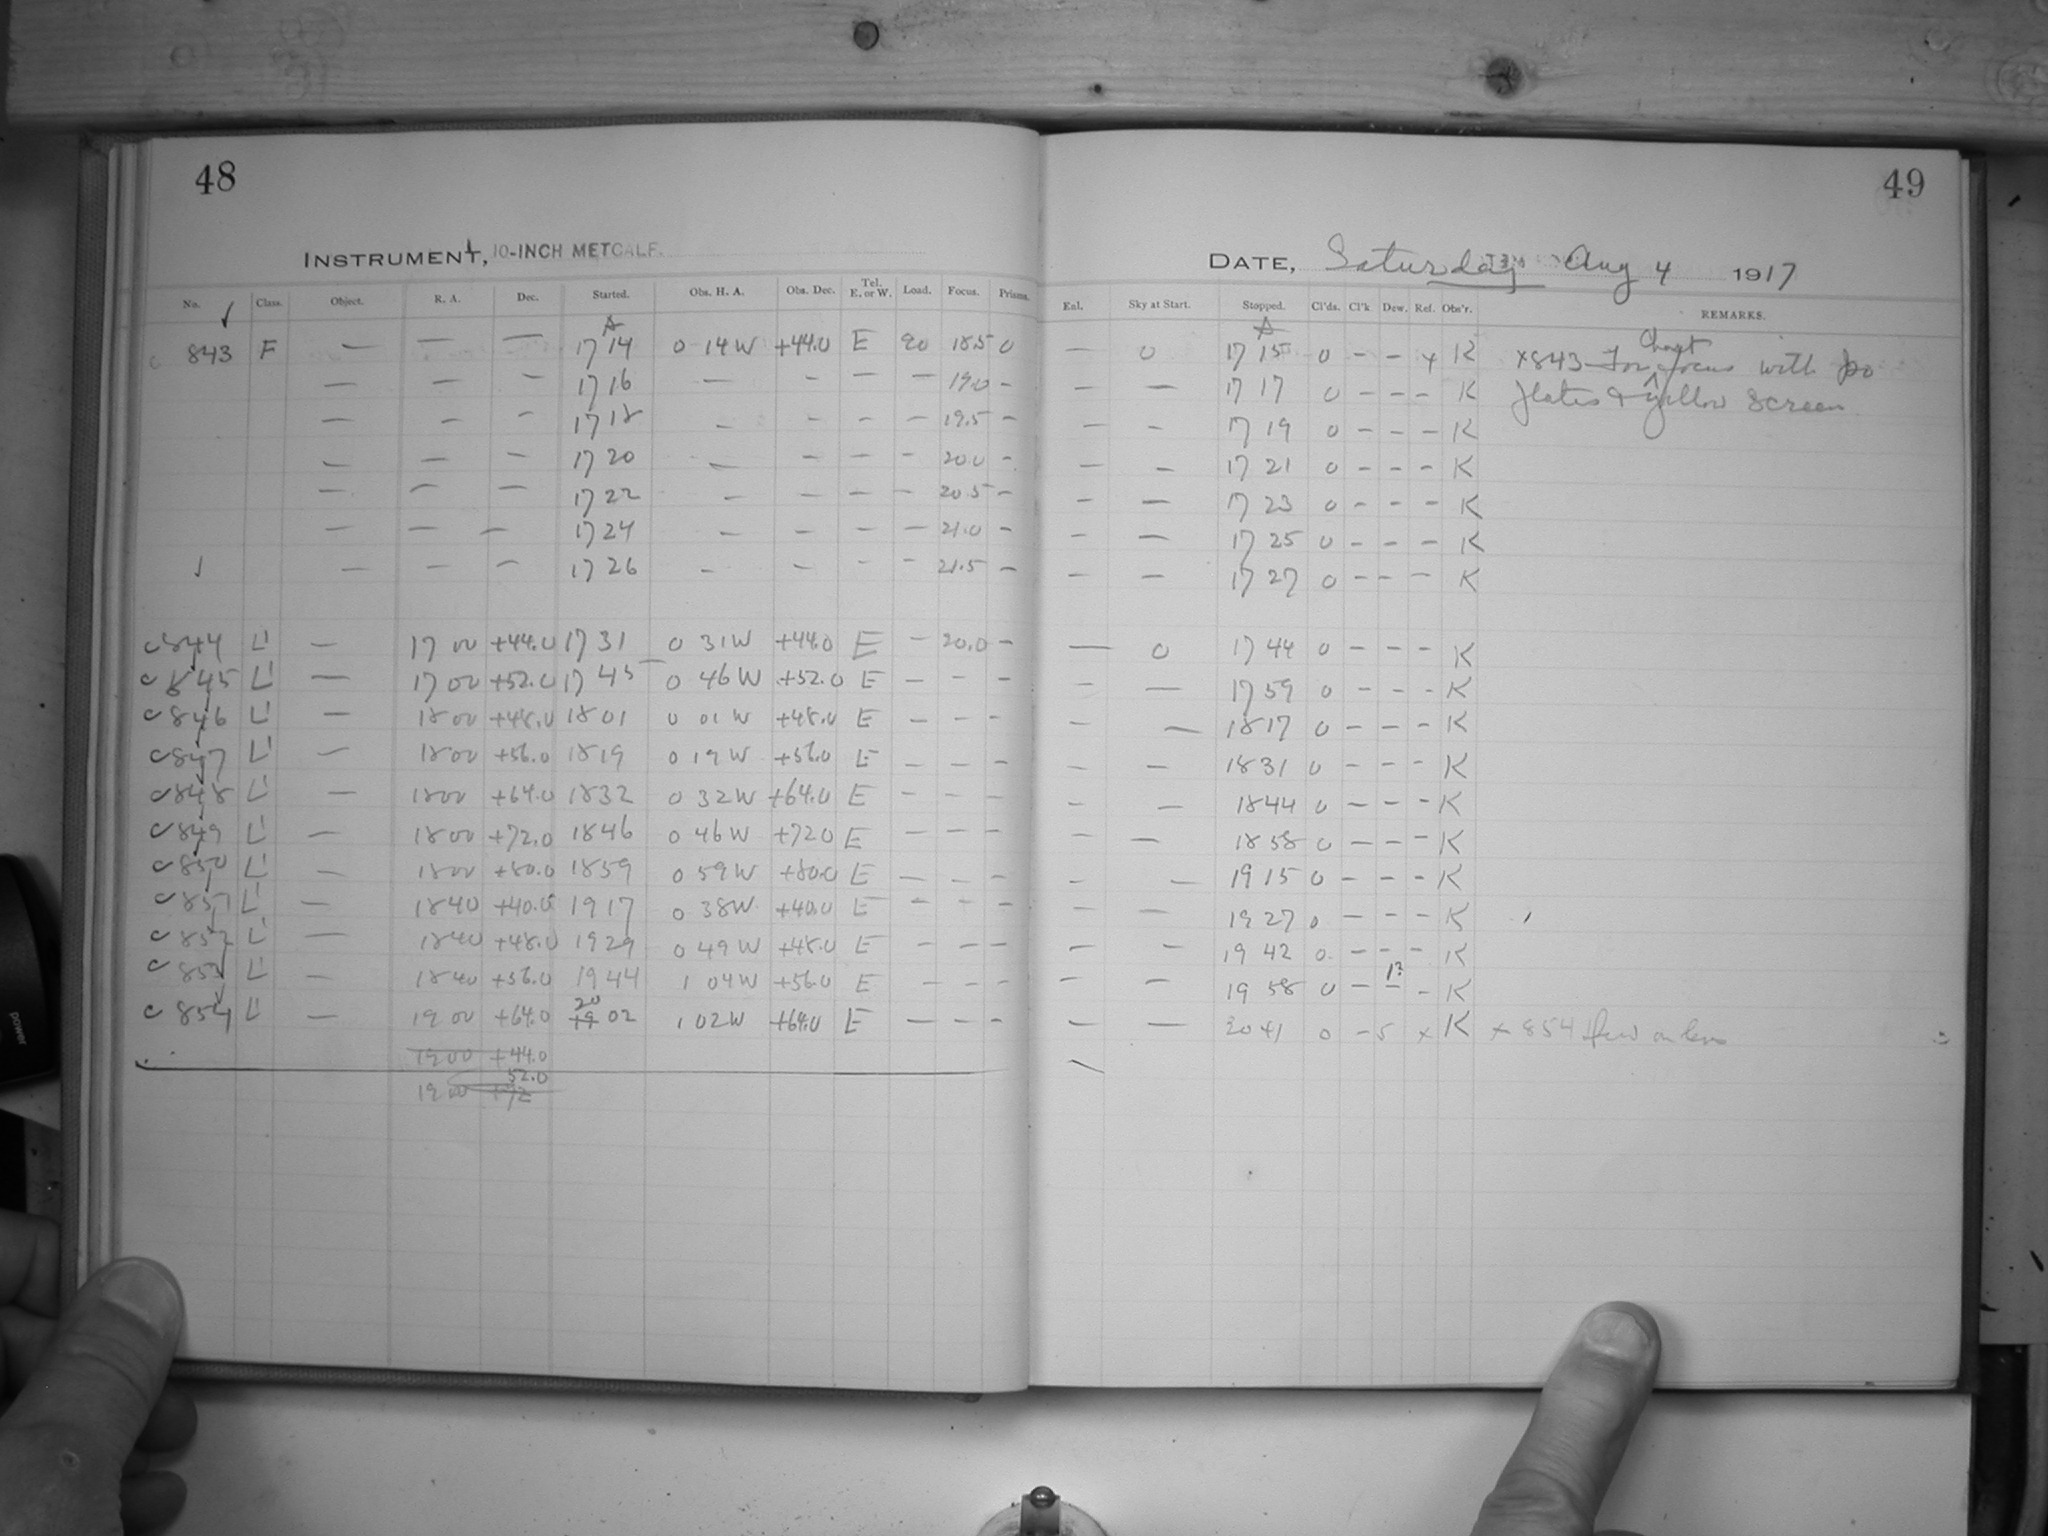 48
INSTRUMENT, 10-INCH METCALF.
No. Class. Object. R. A. Dec. Started. Obs. H. A. Obs. Dec. Tel. E. or W. Load. Focus. Prisms.
843 F — — — 17 14 0 14 W +44.0 E 20 18.5 0
— — — 17 16 — - — — 19.0 -
— — - 17 18 - - - — 19.5 -
— — — 17 20 — - - - 20.0 -
— — — 17 22 - - — - 20.5 -
— — — 17 24 - - - — 21.0 -
— — — 17 26 - — - - 21.5 —
c 844 L — 17 00 +44.0 17 31 0 31 W +44.0 E - 20.0 -
c 845 L — 17 00 +52.0 17 45 0 46 W +52.0 E - - -
c 846 L — 18 00 +48.0 18 01 0 01 W +48.0 E - - -
c 847 L — 18 00 +56.0 18 19 0 19 W +56.0 E - - -
c 848 L — 18 00 +64.0 18 32 0 32 W +64.0 E - - -
c 849 L — 18 00 +72.0 18 46 0 46 W +72 0 E - - -
c 850 L — 18 00 +80.0 18 59 0 59 W +80.0 E - - -
c 851 L — 18 40 +40.0 19 17 0 38 W +40.0 E - - -
c 852 L — 18 40 +48.0 19 29 0 49 W +48.0 E - - -
c 853 L — 18 40 +56.0 19 44 1 04 W +56.0 E - - -
c 854 L — 19 00 +64.0 20 19 02 1 02 W +64.0 E - - -
19 00 +44.0
52.0
19 00
49
DATE, Saturday Aug 4 1917
Enl. Sky at Start. Stopped. Cl'ds. Cl'k Dew. Ref. Obs'r. REMARKS.
Chart
— 0 17 15 0 - - x K x843 For focus with
— — 17 17 0 - - - K plates & yellow screen
— - 17 19 0 - - - K
— - 17 21 0 - - - K
- — 17 23 0 - - - K
- — 17 25 0 - - - K
- — 17 27 0 - - - K
— 0 17 44 0 - - - K
- — 17 59 0 - - - K
- — 18 17 0 - - - K
- - 18 31 0 - - - K
- - 18 44 0 - - - K
- — 18 58 0 - - - K
- - 19 15 0 - - - K
- — 19 27 0 - - - K
- - 19 42 0 - - - K
1?
- - 19 58 0 - - - K
— — 20 41 0 - 5 x K x 854 dew on lens
power